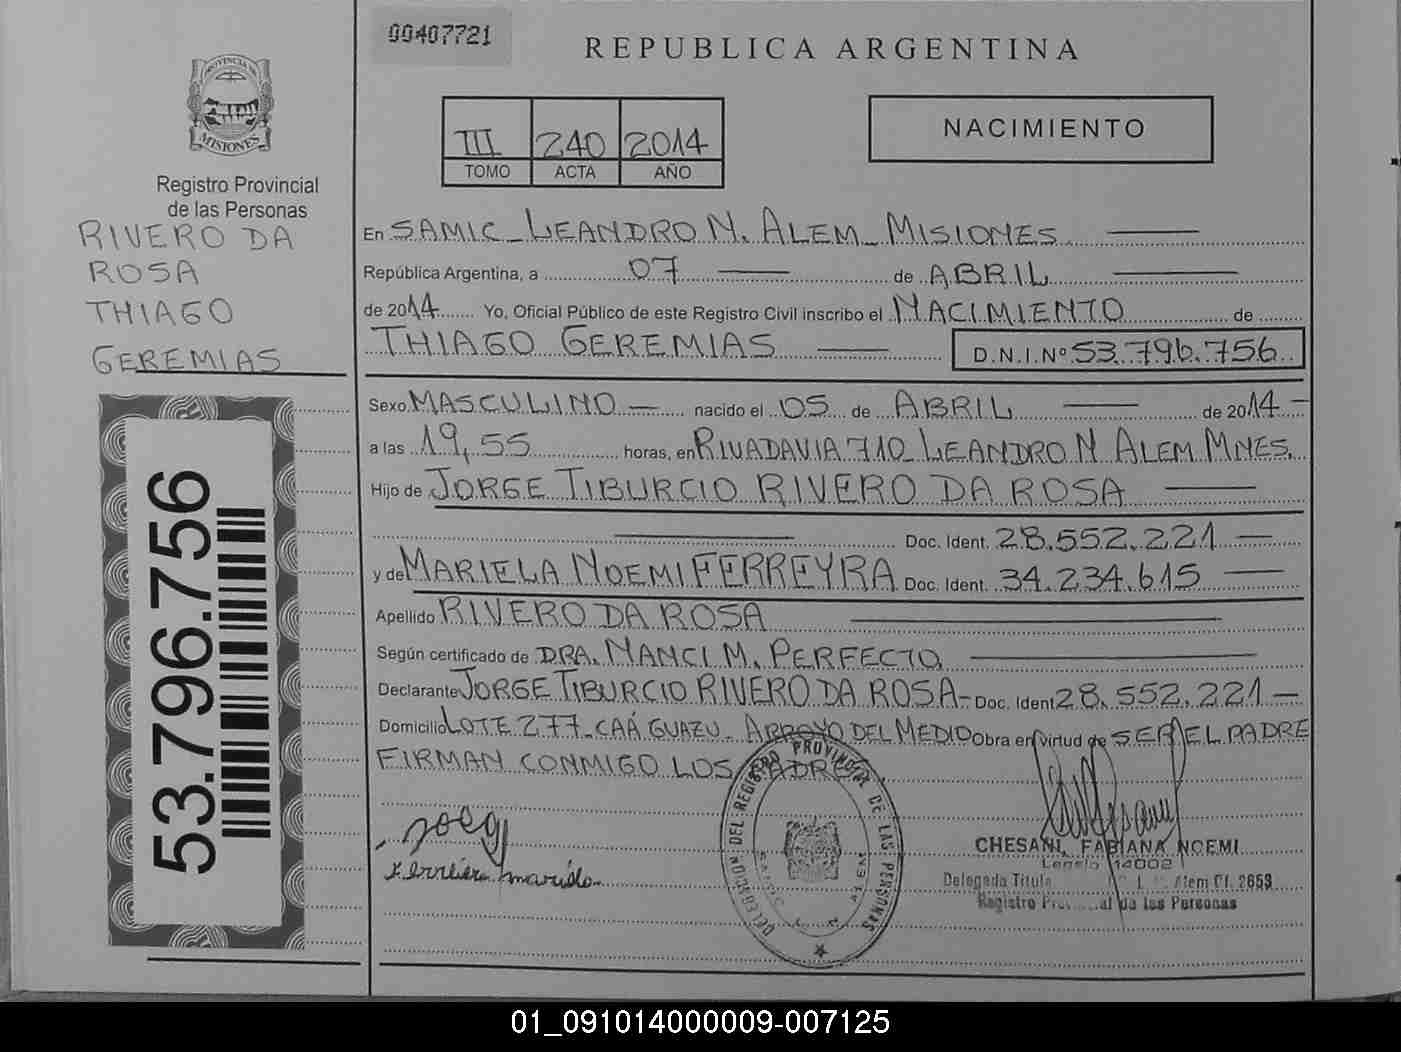 00407721
REPUBLICA ARGENTINA
PROVINCIA DE
MISIONES
Registro Provincial
de las Personas
RIVERO DA
ROSA
THIAGO
GEREMIAS
53.796.756
III 240 2014
TOMO ACTA AÑO
NACIMIENTO
En SAMIC - LEANDRO N. ALEM - MISIONES
República Argentina, a 07 de ABRIL
de 2014 Yo, Oficial Público de este Registro Civil inscribo el NACIMIENTO de
THIAGO GEREMIAS D.N.I.Nº 53.796.756
Sexo MASCULINO nacido el 05 de ABRIL de 2014
a las 19,55 horas, en RIVADAVIA 710 LEANDRO N ALEM MNES.
Hijo de JORGE TIBURCIO RIVERO DA ROSA
Doc. Ident. 28.552.221
y de MARIELA NOEMI FERREYRA Doc. Ident. 34.234.615
Apellido RIVERO DA ROSA
Según certificado de DRA. NANCI M. PERFECTO
Declarante JORGE TIBURCIO RIVERO DA ROSA - Doc. Ident 28.552.221
Domicilio LOTE 277 - CAÁ GUAZU - ARROYO DEL MEDIO Obra en virtud de SER EL PADRE
FIRMAN CONMIGO LOS PADRES
DELEGACION DEL REGISTRO PROVINCIAL DE LAS PERSONAS
CHESANI, FABIANA NOEMI
Legajo 14002
Delegada Titular Alem Cl. 2653
Registro de las Personas
01_091014000009-007125